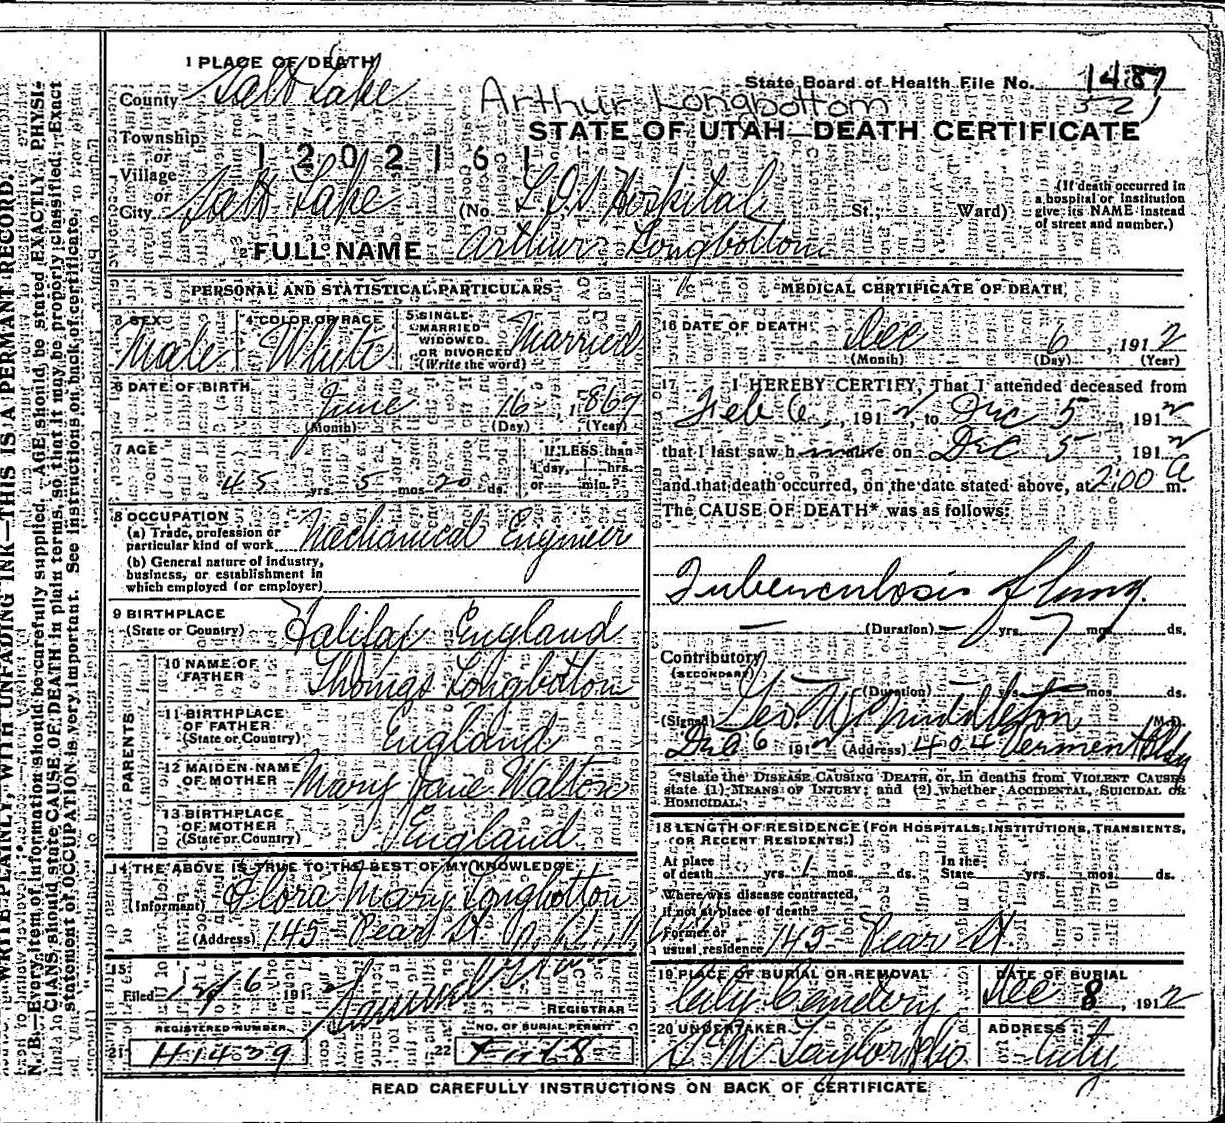 1 PLACE OF DEATH
State Board of Health File No. 1487
County Salt Lake
Arthur Longbottom
52
STATE OF UTAH—DEATH CERTIFICATE
Township
or
Village
1202161
or
City Salt Lake (No. L.D.S. Hospital St.; Ward)
(If death occurred in a hospital or institution give its NAME instead of street and number.)
FULL NAME Arthur Longbottom
PERSONAL AND STATISTICAL PARTICULARS
3 SEX Male
4 COLOR OR RACE White
5 SINGLE, MARRIED WIDOWED, OR DIVORCED (Write the word) Married
6 DATE OF BIRTH June 16 1867
(Month) (Day) (Year)
7 AGE 45 yrs. 5 mos. 20 ds.
If LESS than 1 day, hrs. or min.?
8 OCCUPATION
(a) Trade, profession or particular kind of work Mechanical Engineer
(b) General nature of industry, business, or establishment in which employed (or employer)
9 BIRTHPLACE (State or Country) Halifax England
PARENTS
10 NAME OF FATHER Thomas Longbottom
11 BIRTHPLACE OF FATHER (State or Country) England
12 MAIDEN NAME OF MOTHER Mary Jane Walton
13 BIRTHPLACE OF MOTHER (State or Country) England
14 THE ABOVE IS TRUE TO THE BEST OF MY KNOWLEDGE
(Informant) Flora Mary Longbottom
(Address) 145 Pear St
15
Filed 12/6 1912 Samuel
REGISTRAR
REGISTERED NUMBER
21 H1439
NO. OF BURIAL PERMIT
22
MEDICAL CERTIFICATE OF DEATH
16 DATE OF DEATH Dec 6, 1912
(Month) (Day) (Year)
17 I HEREBY CERTIFY, That I attended deceased from
Feb 6, 1912, to Dec 5, 1912
that I last saw him alive on Dec 5, 1912
and that death occurred, on the date stated above, at 2:00 a m.
The CAUSE OF DEATH* was as follows:
Tuberculosis of lung.
(Duration) — yrs. 7 mos. ds.
Contributory (SECONDARY)
(Duration) yrs. mos. ds.
(Signed) Geo. W. Middleton (M.D.)
Dec 6 1912 (Address) 404 Vermont Bldg
*State the DISEASE CAUSING DEATH, or, in deaths from VIOLENT CAUSES state (1) MEANS OF INJURY; and (2) whether ACCIDENTAL, SUICIDAL OR HOMICIDAL.
18 LENGTH OF RESIDENCE (FOR HOSPITALS, INSTITUTIONS, TRANSIENTS, OR RECENT RESIDENTS.)
At place of death yrs. 1 mos. ds. In the State yrs. mos. ds.
Where was disease contracted, if not at place of death?
Former or usual residence 145 Pear St.
19 PLACE OF BURIAL OR REMOVAL City Cemetery
DATE OF BURIAL Dec 8, 1912
20 UNDERTAKER S. M. Taylor & Co
ADDRESS City
READ CAREFULLY INSTRUCTIONS ON BACK OF CERTIFICATE
WRITE PLAINLY, WITH UNFADING INK—THIS IS A PERMANENT RECORD.
N. B.—Every item of information should be carefully supplied. AGE should be stated EXACTLY. PHYSI-
CIANS should state CAUSE OF DEATH in plain terms, so that it may be properly classified. Exact
statement of OCCUPATION is very important. See instructions on back of certificate.